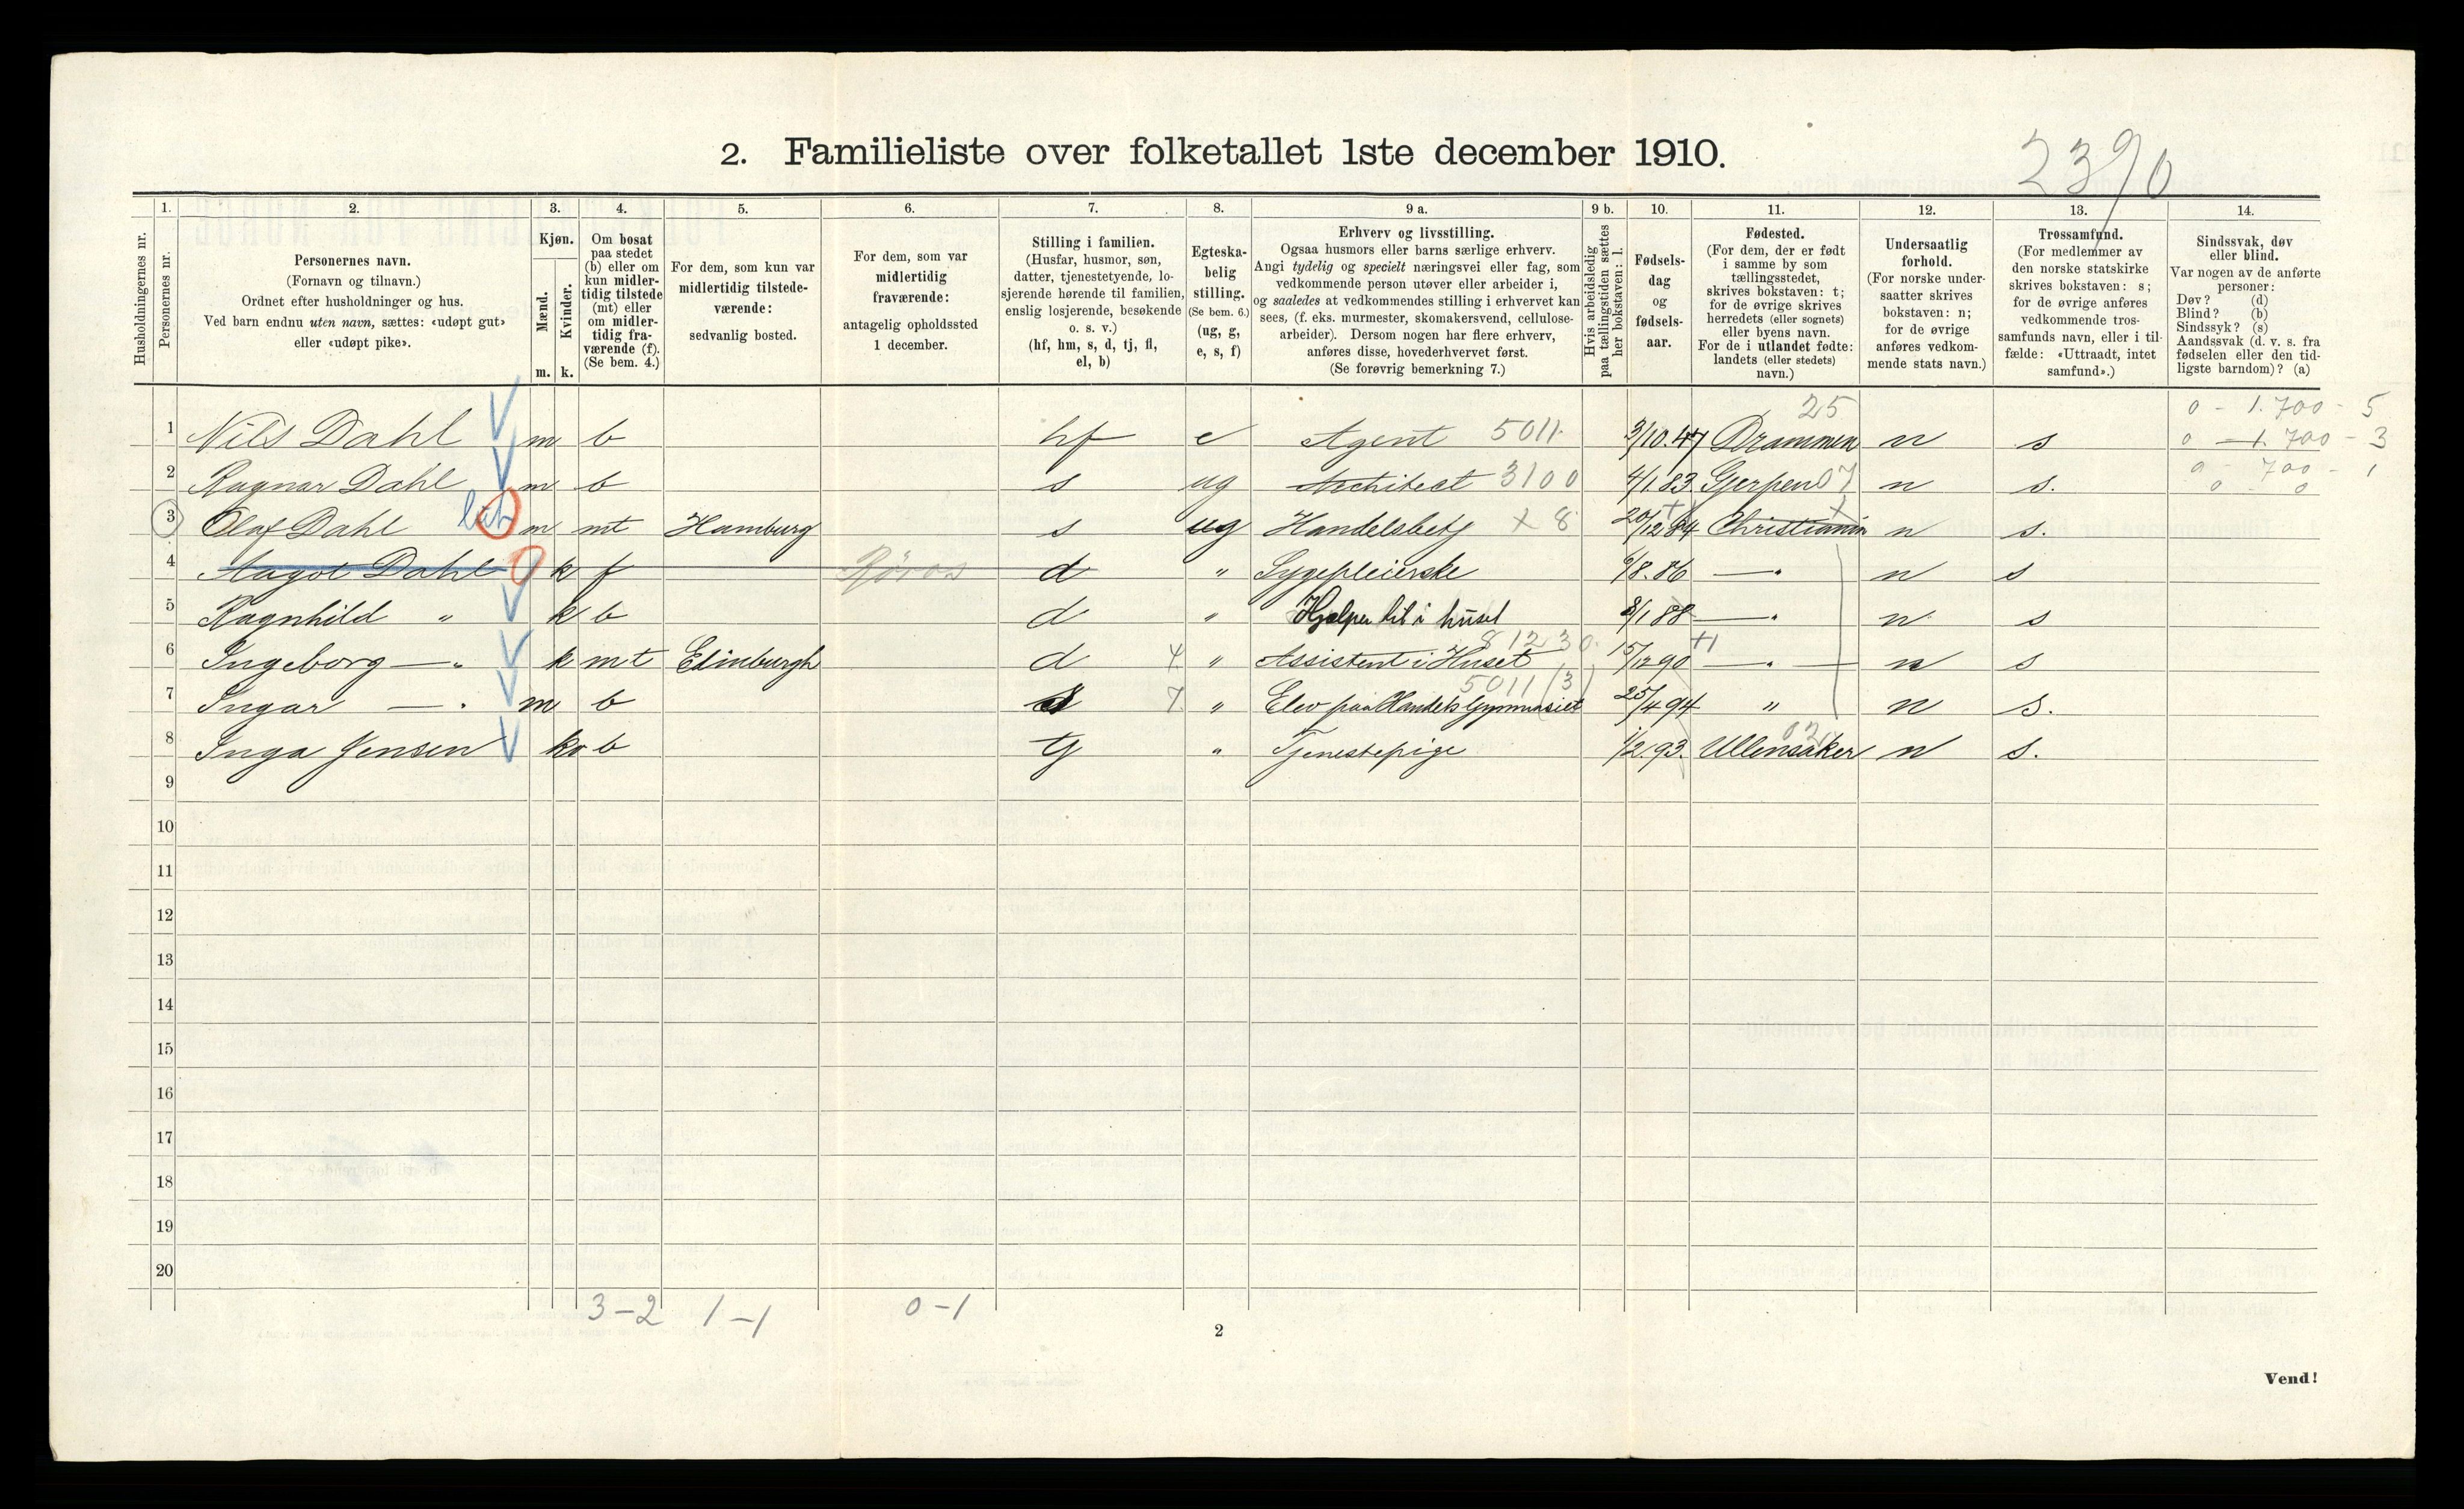 2390
2. Familieliste over folketallet 1ste december 1910.
1. 2. 3. 4. 5. 6. 7. 8. 9 a. 9 b. 10. 11. 12. 13. 14.
Husholdningernes nr.
Personernes nr.
Personernes navn.
(Fornavn og tilnavn.)
Ordnet efter husholdninger og hus.
Ved barn endnu uten navn, sættes: «udøpt gut»
eller «udøpt pike».
Kjøn.
Mænd. Kvinder.
m. k.
Om bosat
paa stedet
(b) eller om
kun midler-
tidig tilstede
(mt) eller
om midler-
tidig fra-
værende (f).
(Se bem. 4.)
For dem, som kun var
midlertidig tilstede-
værende:
sedvanlig bosted.
For dem, som var
midlertidig
fraværende:
antagelig opholdssted
1 december.
Stilling i familien.
(Husfar, husmor, søn,
datter, tjenestetyende, lo-
sjerende hørende til familien,
enslig losjerende, besøkende
o. s. v.)
(hf, hm, s, d, tj, fl,
el, b)
Egteska-
belig
stilling.
(Se bem. 6.)
(ug, g,
e, s, f)
Erhverv og livsstilling.
Ogsaa husmors eller barns særlige erhverv.
Angi tydelig og specielt næringsvei eller fag, som
vedkommende person utøver eller arbeider i,
og saaledes at vedkommendes stilling i erhvervet kan
sees, (f. eks. murmester, skomakersvend, cellulose-
arbeider). Dersom nogen har flere erhverv,
anføres disse, hovederhvervet først.
(Se forøvrig bemerkning 7.)
Hvis arbeidsledig
paa tællingstiden sættes
her bokstaven: l.
Fødsels-
dag
og
fødsels-
aar.
Fødested.
(For dem, der er født
i samme by som
tællingsstedet,
skrives bokstaven: t;
for de øvrige skrives
herredets (eller sognets)
eller byens navn.
For de i utlandet fødte:
landets (eller stedets)
navn.)
Undersaatlig
forhold.
(For norske under-
saatter skrives
bokstaven: n;
for de øvrige
anføres vedkom-
mende stats navn.)
Trossamfund.
(For medlemmer av
den norske statskirke
skrives bokstaven: s;
for de øvrige anføres
vedkommende tros-
samfunds navn, eller i til-
fælde: «Uttraadt, intet
samfund».)
Sindssvak, døv
eller blind.
Var nogen av de anførte
personer:
Døv? (d)
Blind? (b)
Sindssyk? (s)
Aandssvak (d. v. s. fra
fødselen eller den tid-
ligste barndom)? (a)
25 0 - 1.700 - 5
1 Nils Dahl m b hf e Agent 5011 3/10.47 Drammen n s 0 - 1.700 - 3
0 - 700 - 1
2 Ragnar Dahl m b s ug Architect 3100 4/1 83. Gjerpen 07 n s. 0 - 0
3 Olaf Dahl m mt Hamburg s ug Handelsbetj x 8 20/12 84 Christiania n s.
4 Aagot Dahl k f Röros d " Sygepleierske 6/8. 86 —"— n s
5 Ragnhild " k b d " Hjælper til i huset 8/1 88 —"— n s
8 12 30
6 Ingeborg —"— k mt Edinburgh d 4 " Assistent i Huset 15/12 90 —"— n s
5011 (3)
7 Ingar —"— m b s 7 " Elev paa Handels Gymnasiet 25/4 94 " n s.
02
8 Inga Jensen k b tj " Tjenestepige 1/2. 93. Ullensaker n s.
9
10
11
12
13
14
15
16
17
18
19
20
3-2 1-1 0-1
2
Vend!